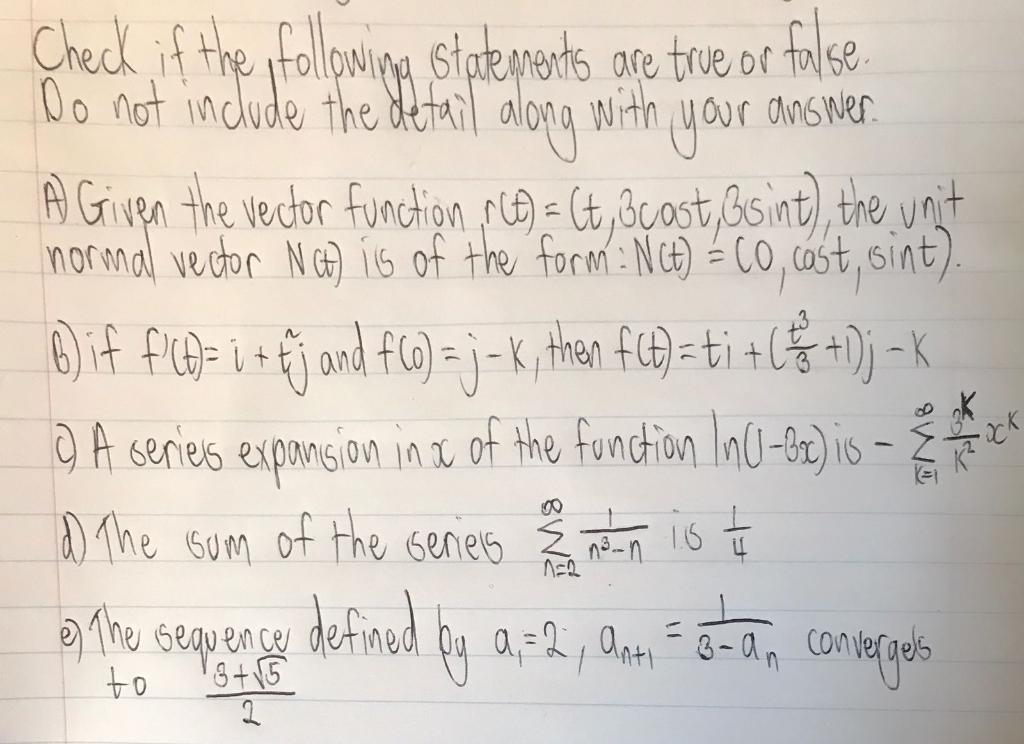 Check if the following statements are true or false.
Do not include the detail along with your answer.
A) Given the vector function r(t) = (t, 3cost, 3sint), the unit
normal vector N(t) is of the form: N(t) = (0, cost, sint).
b) if f'(t) = i + t²j and f(0) = j - k, then f(t) = ti + (t³/3 + 1)j - k
c) A series expansion in x of the function ln(1-3x) is - ∑_{k=1}^{∞} 3^k/k² x^k
d) The sum of the series ∑_{n=2}^{∞} 1/(n³-n) is 1/4
e) The sequence defined by a₁=2, aₙ₊₁ = 1/(3-aₙ) converges
to (3+√5)/2